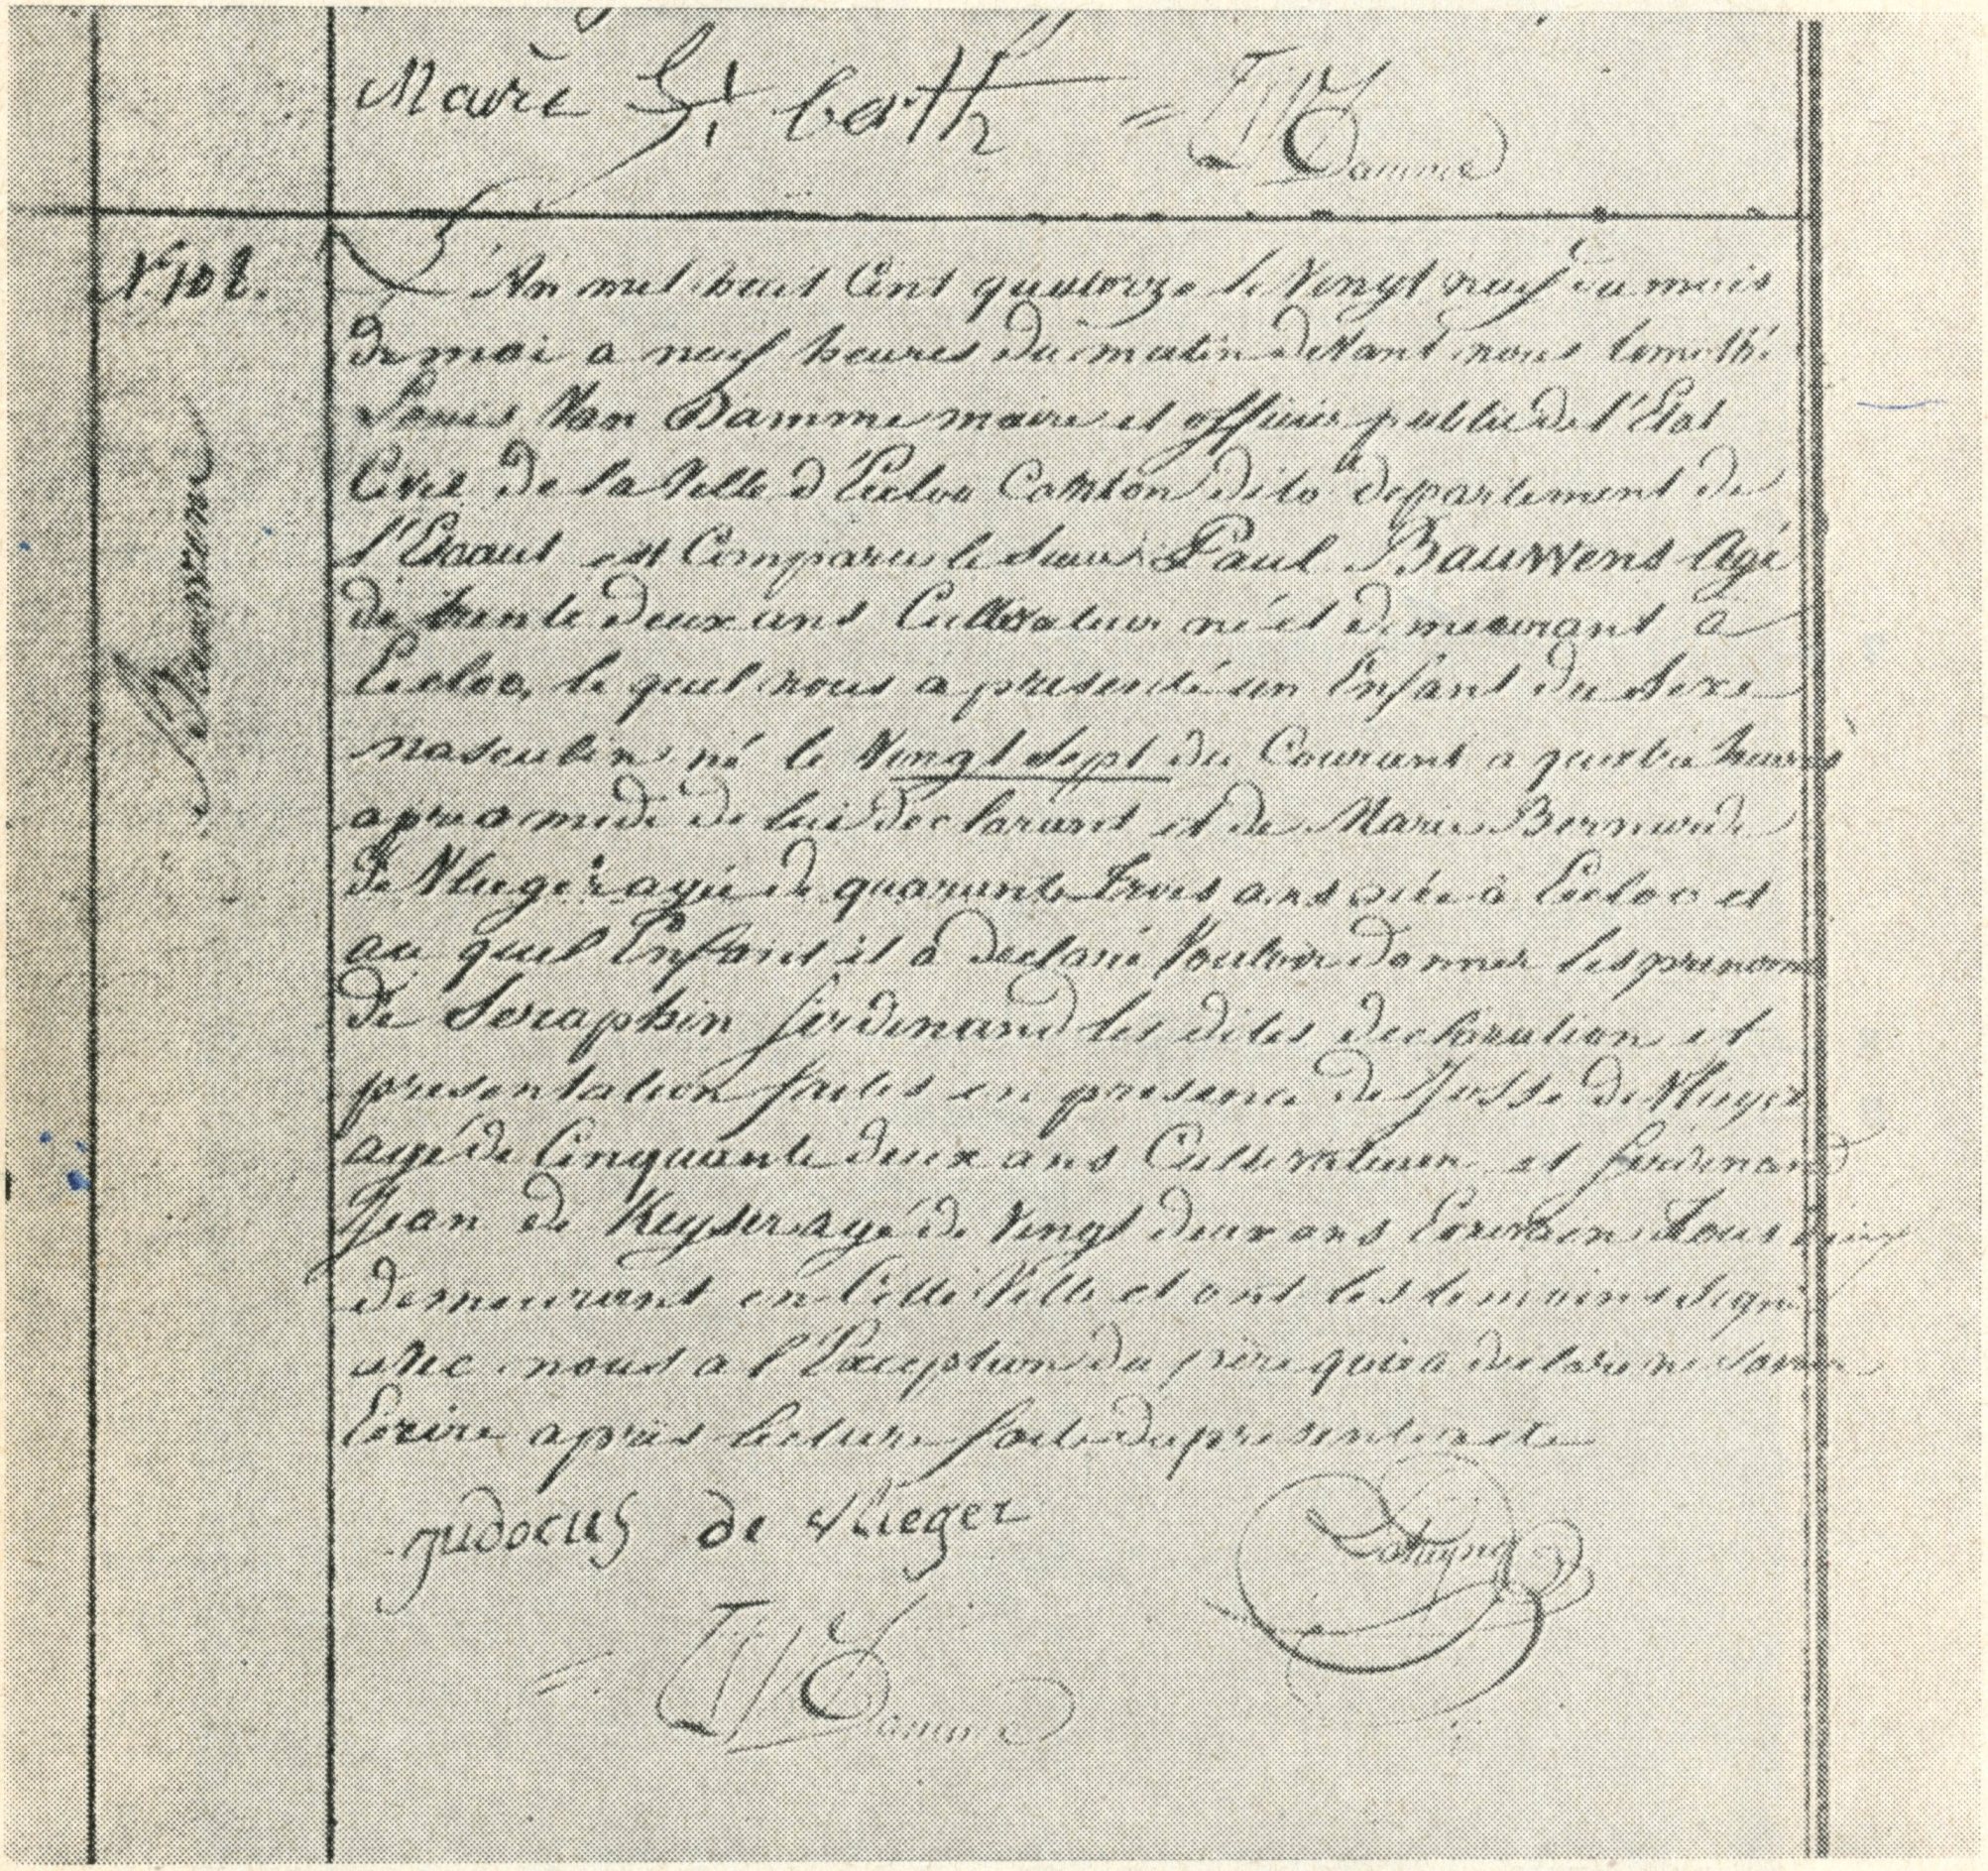 Marie
Damme
N° 108.
Bauwen
L'An mil huit Cent quatorze le Vingt neuf du mois
de mai a neuf heures du matin devant nous timothé
Louis Van Damme maire et officier public de l'Etat
Civil de la Ville d'Eecloo Canton dito departement de
l'Escaut est Comparu le Sieur Paul Bauwens Agé
de trente deux ans Cultivateur né et demeurant à
Eecloo, le quel nous a presenté un Enfant du Sexe
masculin né le Vingt Sept du Courant a quatre heures
apres midi de lui declarant et de Marie Bernarde
de Vlieger agée de quarante trois ans née à Eecloo et
au quel Enfant il a declaré Vouloir donner les prenoms
de Seraphin ferdinand les dites declaration et
presentation faites en presence de Josse de Vlieger
agé de Cinquante deux ans Cultivateur et ferdinand
Jean de Keyser agé de Vingt deux ans Ecrivain tous deux
demeurant en Cette Ville et ont les temoins signé
avec nous a l'Exception du père qui a declaré ne Savoir
Ecrire après lecture faite du present acte
Judocus de Vlieger
Damme